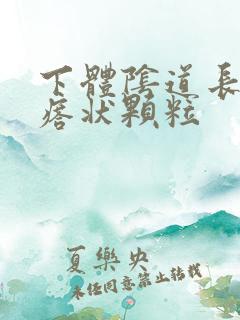 下體陰道長
痞狀顆粒
夏樂央
未任同意禁止转载